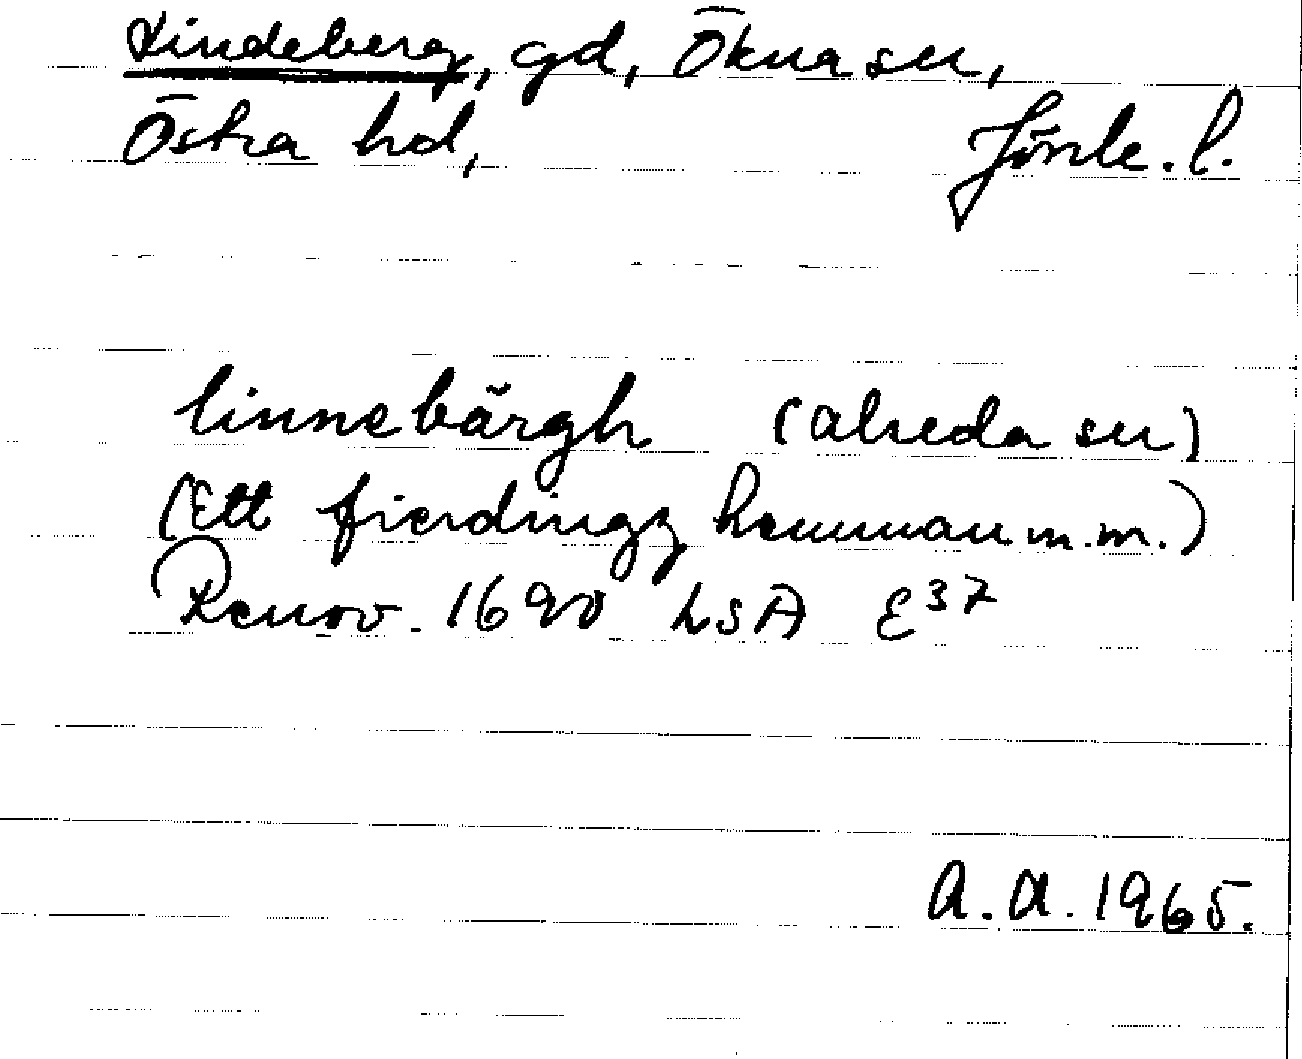 Lindeberg, gd, Ökna sn,
Östra hd, Jönk. l.
linnebärgh (alseda sn)
(Ett fierdingz hemman m.m.)
Renov. 1690 LSA E³⁷
A.A. 1965.